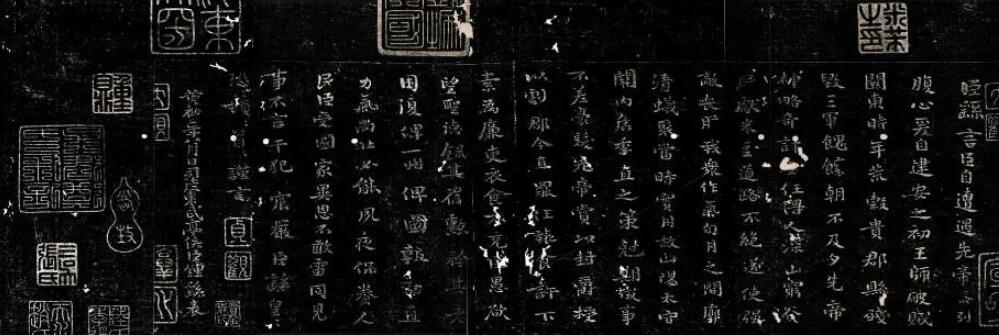 臣繇言臣自遭遇先帝忝列
腹心爰自建安之初王師破賊
關東時年荒穀貴郡縣殘
毀三軍餽饟朝不及夕先帝
神略奇計委任得人深山窮谷
民獻米豆道路不絕遂使強
敵喪膽我眾作氣旬月之間廓
清蟻聚當時實用故山陽太守
關內侯季直之策剋期成事
不差豪髮先帝賞以封爵授
以劇郡今直罷任旅食許下
素為廉吏衣食不充臣愚欲
望聖德錄其舊勳矜其老
困復俾一州俾圖報效直
力氣尚壯必能夙夜保養人
民臣受國家異恩不敢雷同見
事不言干犯宸嚴臣繇皇
恐謹言
黃初二年八月日司徒東武亭侯臣鍾繇表